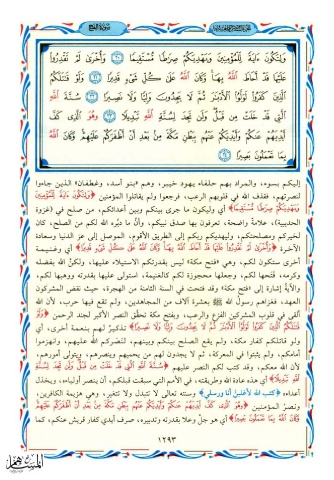 سورة الفتح
وَلِتَكُونَ ءَايَةً لِّلْمُؤْمِنِينَ وَيَهْدِيَكُمْ صِرَٰطًا مُّسْتَقِيمًا ٢٠ وَأُخْرَىٰ لَمْ تَقْدِرُوا۟
عَلَيْهَا قَدْ أَحَاطَ ٱللَّهُ بِهَا وَكَانَ ٱللَّهُ عَلَىٰ كُلِّ شَىْءٍ قَدِيرًا ٢١ وَلَوْ قَٰتَلَكُمُ
ٱلَّذِينَ كَفَرُوا۟ لَوَلَّوُا۟ ٱلْأَدْبَٰرَ ثُمَّ لَا يَجِدُونَ وَلِيًّا وَلَا نَصِيرًا ٢٢ سُنَّةَ ٱللَّهِ
ٱلَّتِى قَدْ خَلَتْ مِن قَبْلُ وَلَن تَجِدَ لِسُنَّةِ ٱللَّهِ تَبْدِيلًا ٢٣ وَهُوَ ٱلَّذِى كَفَّ
أَيْدِيَهُمْ عَنكُمْ وَأَيْدِيَكُمْ عَنْهُم بِبَطْنِ مَكَّةَ مِنۢ بَعْدِ أَنْ أَظْفَرَكُمْ عَلَيْهِمْ وَكَانَ ٱللَّهُ
بِمَا تَعْمَلُونَ بَصِيرًا ٢٤
إليكم بسوء، والمراد بهم حلفاء يهود خيبر، وهم «بنو أسد، وغطفان» الذين جاءوا
لنصرتهم، فقذف الله في قلوبهم الرعب، فرجعوا ولم يقاتلوا المؤمنين ﴿وَلِتَكُونَ ءَايَةً لِّلْمُؤْمِنِينَ
وَيَهْدِيَكُمْ صِرَٰطًا مُّسْتَقِيمًا﴾ أي وليكون ما جرى بينكم وبين أعدائكم، من صلح في (غزوة
الحديبية) علامةً واضحة، تعرفون بها صدق نبيكم، وأنَّ ما دبَّره الله لكم من الصلح، كان
لخيركم ومصلحتكم، وليهديكم ربكم إلى الطريق الأقوم، الموصل إلى عز الدنيا وسعادة
الآخرة ﴿وَأُخْرَىٰ لَمْ تَقْدِرُوا۟ عَلَيْهَا قَدْ أَحَاطَ ٱللَّهُ بِهَا وَكَانَ ٱللَّهُ عَلَىٰ كُلِّ شَىْءٍ قَدِيرًا﴾ أي وغنيمة
أخرى ستكون لكم، وهي «فتح مكة» ليس بقدرتكم الاستيلاء عليها، ولكنَّ الله بفضله
وكرمه، فتحها لكم، وجعلها محجوزة لكم كالغنيمة، استولى عليها بقدرته ووهبها لكم،
والآيةُ إشارة إلى «فتح مكة» وقد فتحت في السنة الثامنة من الهجرة، حيث نقض المشركون
العهد، فغزاهم رسول الله ﷺ بعشرة آلاف من المجاهدين، ولم تقع فيها حرب، لأن الله
ألقى في قلوب المشركين الفزع والرعب، وبفتح مكة تحقَّق النصر الأكبر لجند الرحمن ﴿وَلَوْ
قَٰتَلَكُمُ ٱلَّذِينَ كَفَرُوا۟ لَوَلَّوُا۟ ٱلْأَدْبَٰرَ ثُمَّ لَا يَجِدُونَ وَلِيًّا وَلَا نَصِيرًا﴾ تذكيرٌ لهم بنعمة أخرى، أي
ولو قاتلكم كفار مكة، ولم يقع الصلح بينكم وبينهم، لنَصَركم الله عليهم، وانهزموا
أمامكم، ولم يثبتوا في المعركة، ثم لا يجدون لهم من يحميهم وينصرهم، ويتولى أمورهم،
لأن الله معكم، وقد كتب لكم النصر عليهم ﴿سُنَّةَ ٱللَّهِ ٱلَّتِى قَدْ خَلَتْ مِن قَبْلُ وَلَن تَجِدَ لِسُنَّةِ
ٱللَّهِ تَبْدِيلًا﴾ أي هذه عادة الله وطريقته، في الأمم التي سبقت قبلكم، أن ينصر أولياءه، ويخذل
أعداءه ﴿كتب الله لأغلبنَّ أنا ورسلي﴾ وسنته تعالى لا تتبدل ولا تتغير، وهي هزيمة الكافرين،
ونصرُ المؤمنين ﴿وَهُوَ ٱلَّذِى كَفَّ أَيْدِيَهُمْ عَنكُمْ وَأَيْدِيَكُمْ عَنْهُم بِبَطْنِ مَكَّةَ مِنۢ بَعْدِ أَنْ أَظْفَرَكُمْ عَلَيْهِمْ
وَكَانَ ٱللَّهُ بِمَا تَعْمَلُونَ بَصِيرًا﴾ أي هو جلَّ وعلا بقدرته وتدبيره، صرف أيدي كفار قريش عنكم، كما
١٢٩٣